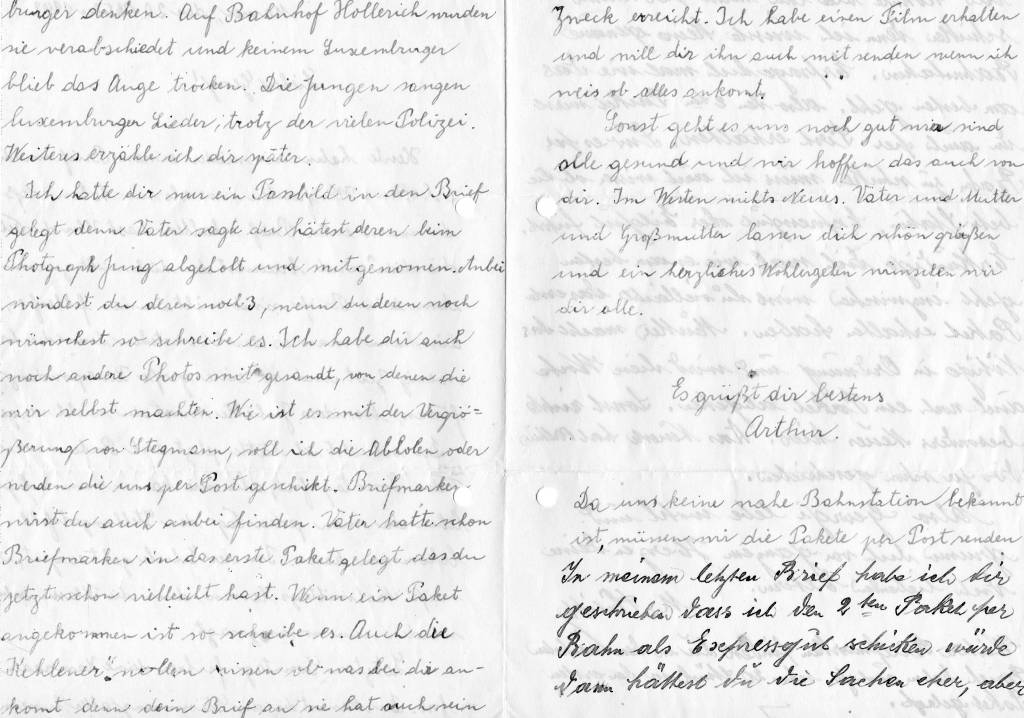 burger denken. Auf Bahnhof Hollerich wurden
sie verabschiedet und keinem Luxemburger
blieb das Auge trocken. Die Jungen sangen
luxemburger Lieder, trotz der vielen Polizei.
Weiteres erzähle ich dir später.
Ich hatte dir nur ein Passbild in den Brief
gelegt denn Vater sagte du hätest deren beim
Photgraph Jung abgeholt und mitgenomen. Anbei
windest du deren noch 3, wenn du deren noch
wünschest so schreibe es. Ich habe dir auch
noch andere Photos mit gesandt, von denen die
wir selbst machten. Wie ist es mit der Vergrö=
ßerung von Stegmann, soll ich die Abholen oder
werden die uns per Post geschikt. Briefmarken
wirst du auch anbei finden. Vater hatte schon
Briefmarken in das erste Paket gelegt das du
jetzt schon vielleicht hast. Wenn ein Paket
angekommen ist so schreibe es. Auch die
"Kehlener" wollen wissen ob was bei die an-
komt denn dein Brief an sie hat auch sein
Zweck erreicht. Ich habe einen Film erhalten
und will dir ihn auch mit senden wenn ich
weis ob alles ankomt.
Sonst geht es uns noch gut wir sind
alle gesund und wir hoffen das auch von
dir. Im Westen nichts Neues. Vater und Mutter
und Großmutter lassen dich schön grüßen
und ein herzliches Wohlergehen wünschen wir
dir alle.
Es grüßt dir bestens
Arthur.
Da uns keine nahe Bahnstation bekannt
ist, müssen wir die Pakete per Post senden
In meinem letzten Brief habe ich Dir
geschrieben dass ich den 2ten Paket per
Bahn als Expressgut schicken würde
dann hättest du die Sachen eher, aber